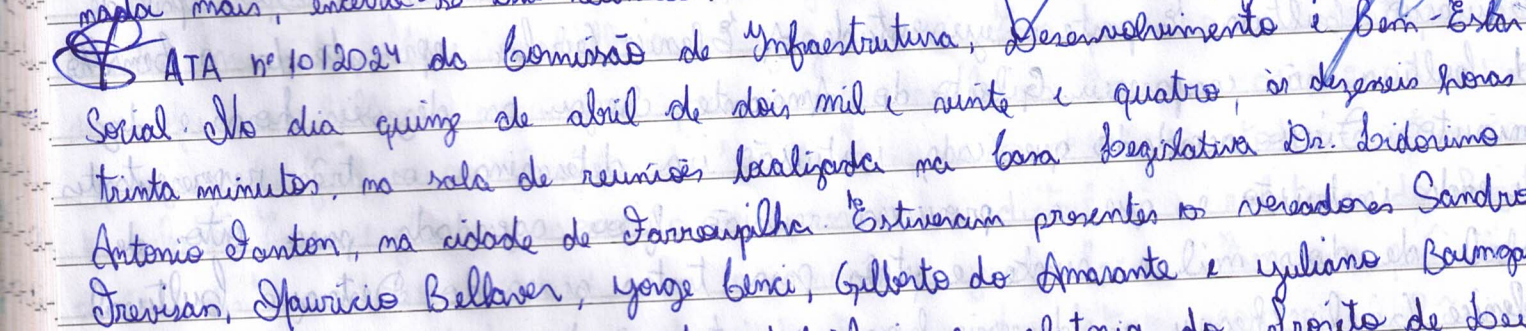 nada mais,
ATA nº 10/2024 da Comissão de Infraestrutura, Desenvolvimento e Bem-Estar
Social. No dia quinze de abril de dois mil e vinte e quatro, às dezesseis horas
trinta minutos, na sala de reuniões localizada na Casa Legislativa Dr. Lidorino
Antonio Fanton, na cidade de Farroupilha Estiveram presentes os vereadores Sandro
Trevisan, Mauricio Bellaver, Jorge Cenci, Gilberto do Amarante e Juliano Baumga
do Projeto de Lei